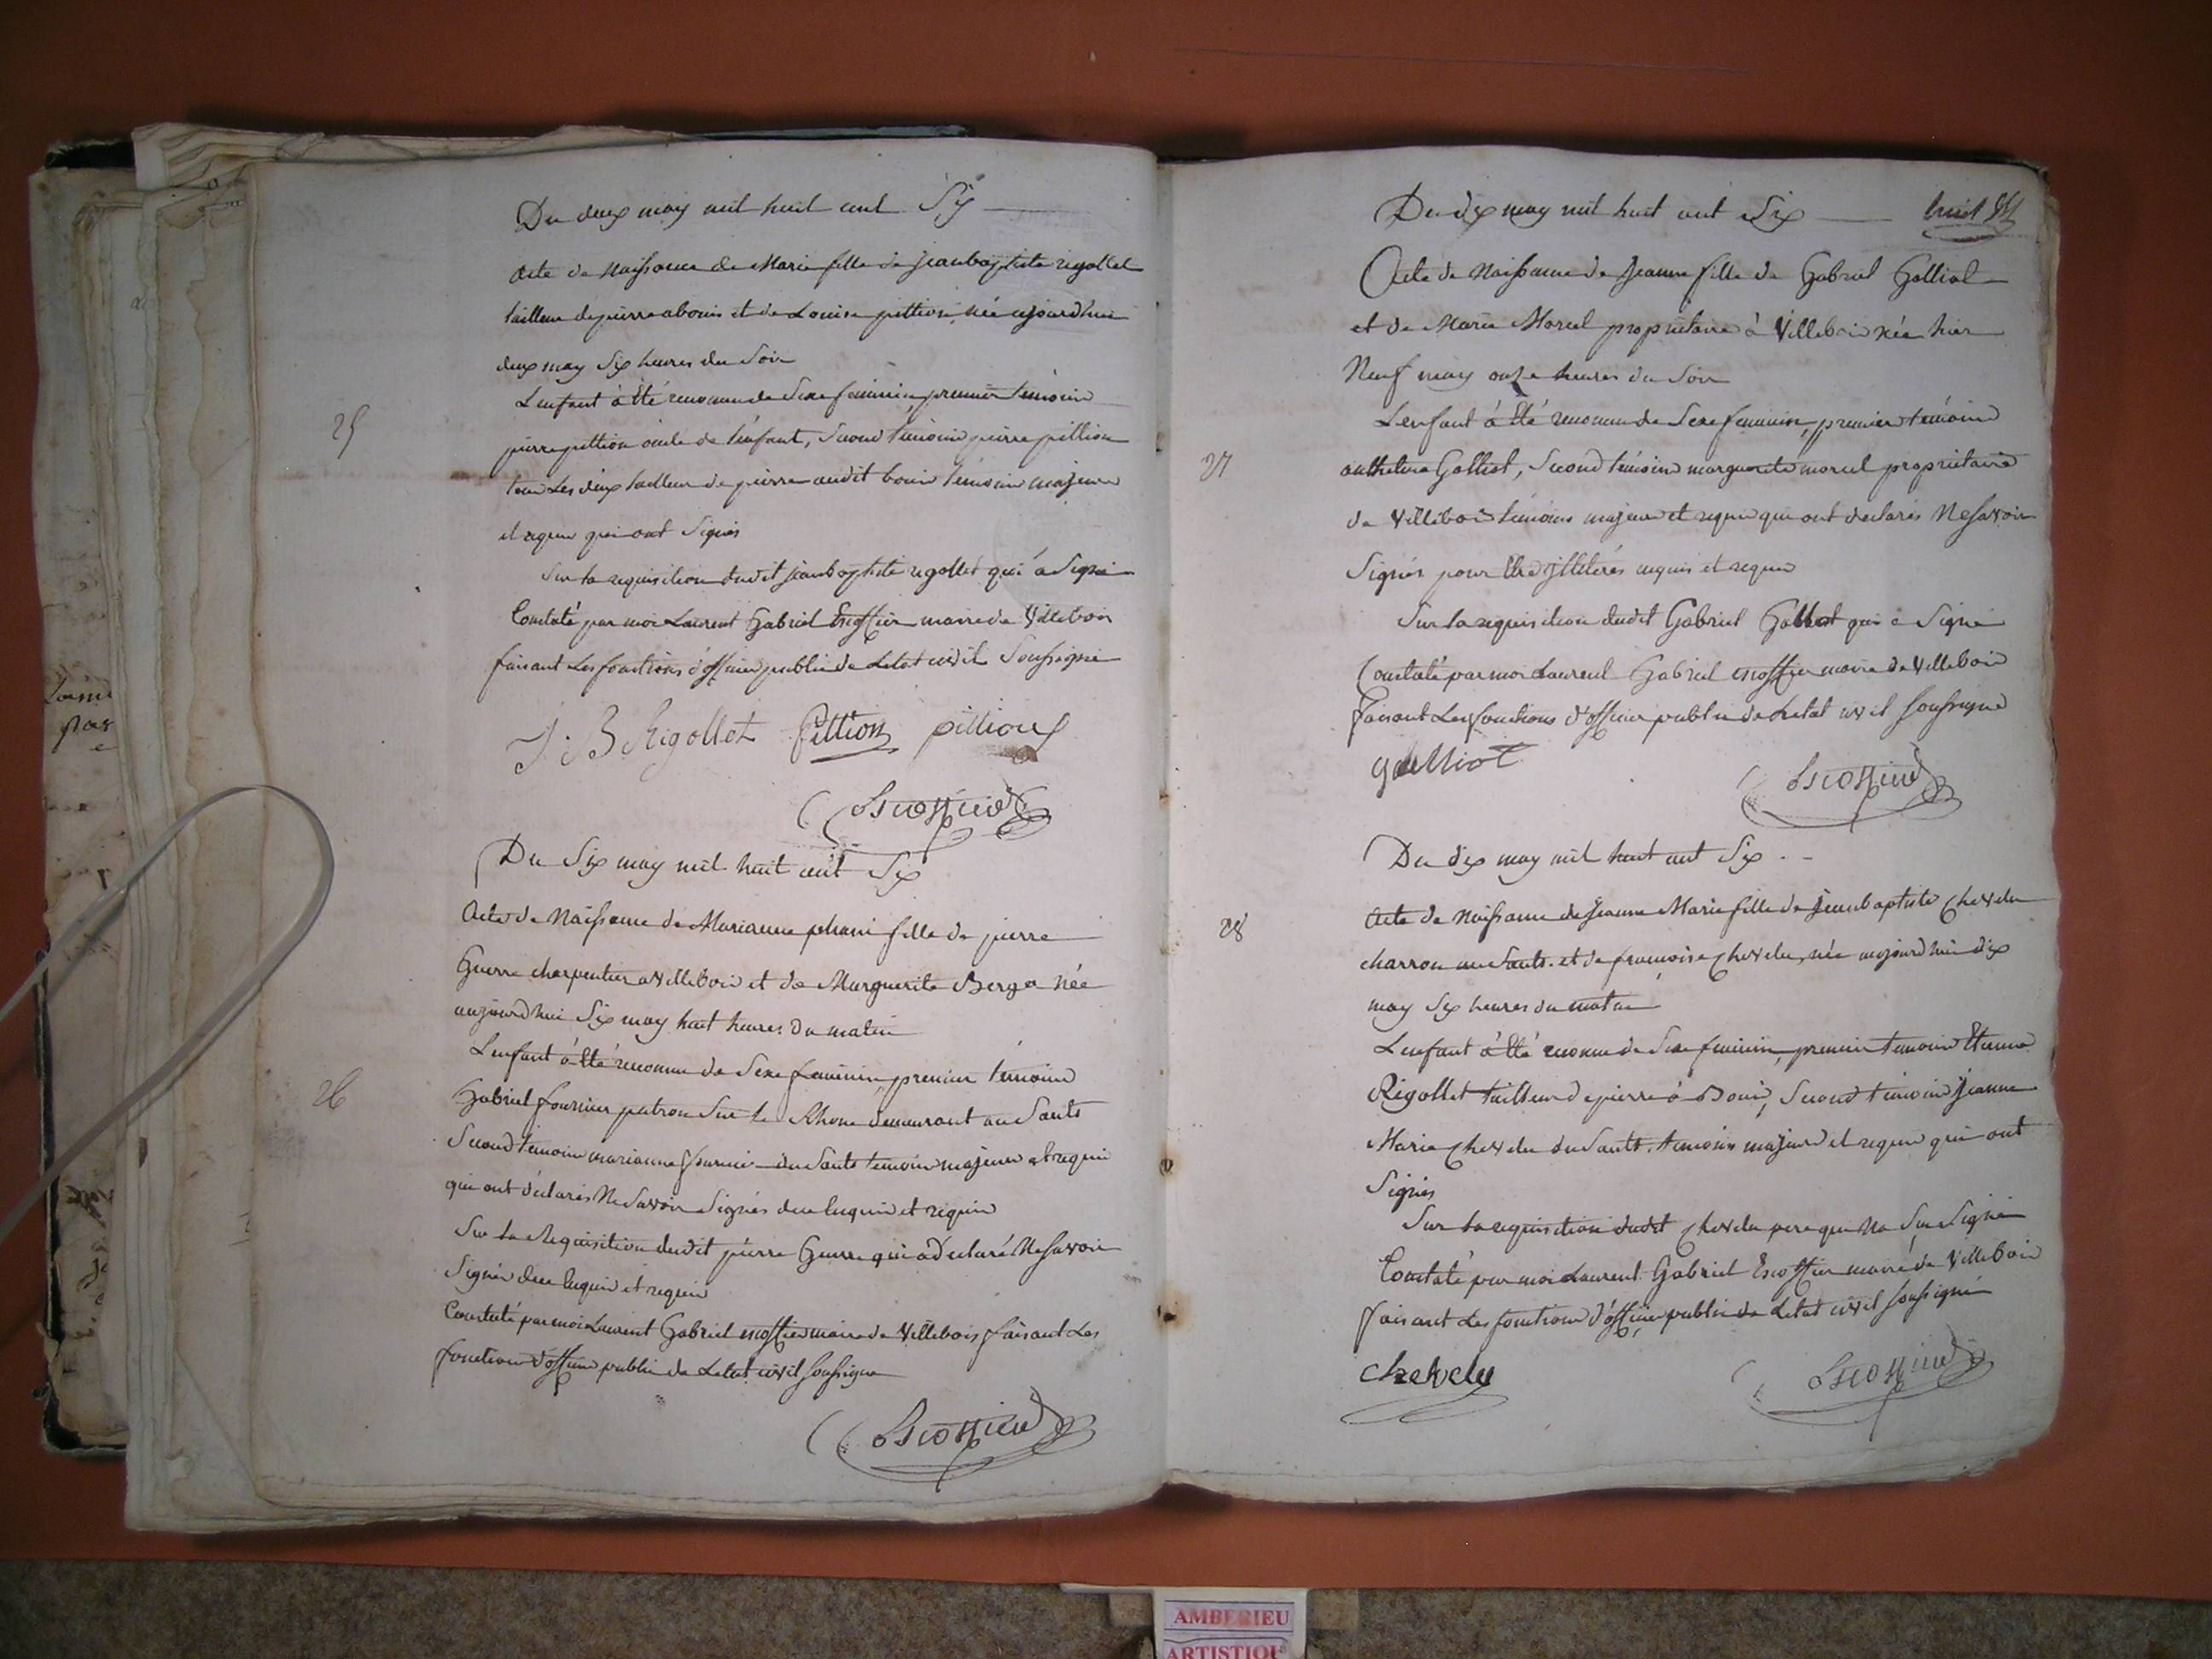 Du deux may mil huit cent Six
acte de Naissance de Marie fille de jeanbaptiste rigollet
tailleur de pierre a bouis et de Louise pittion, née ajourdhui
deux may Six heures du Soir
25
L'enfant à été reconnu de Sexe feminin, premier temoin
pierre pittion oncle de l'enfant, Second temoin pierre pittion
tous Les deux tailleur de pierre audit bouis temoins majeurs
et requis qui ont Signés
Sur la requisition dudit jeanbaptiste rigollet qui à Signé
Constaté par moi Laurent Gabriel Escoffier maire de Villebois
faisant Les fonctions d'officier public de Letat civil Soussigné
J. B Rigollet Pittion pittion
Escoffier
Du Six may mil huit cent Six
Acte de Naissance de Marianne fille de pierre
Guerre charpentier a Villebois et de Marguerite Berge Née
aujourdhui Six may huit heures du matin
26
L'enfant à été reconnu de Sexe feminin, premier temoin
Gabriel fournier patron Sur le Rhone demeurant au Sault
Second temoin marianne du Sault temoins majeurs et requis
qui ont déclarés Ne Savoir Signés de ce enquis et requis
Sur la Requisition dudit pierre Guerre qui à déclaré Ne Savoir
Signer de ce enquis et requis
Constaté par moi Laurent Gabriel escoffier maire de Villebois faisant Les
fonctions d'officier public de Letat civil soussigné
Escoffier
Du dix may mil huit cent Six
Acte de Naissance de Jeanne fille de Gabriel Galliot
et de Marie Morel proprietaire à Villebois née hier
Neuf may onze heures du Soir
L'enfant à été reconnu de Sexe feminin, premier temoin
27
anthelme Galliot, Second temoin marguerite morel proprietaire
de Villebois temoins majeurs et requis qui ont declarés Ne Savoir
Signés pour être illiterés enquis et requis
Sur la requisition dudit Gabriel Galliot qui a Signé
Constaté par moi Laurent Gabriel escoffier maire de Villebois
faisant Les fonctions d'officier public de Letat civil soussigné
galliot
Escoffier
Du dix may mil huit cent Six
28
Acte de Naissance de Jeanne Marie fille de Jeanbaptiste Chevelu
charron au Sault et de francoise Chevelu, née aujourdhui dix
may Six heures du matin
L'enfant à été reconnu de Sexe feminin, premier temoin Etienne
Rigollet tailleur de pierre à Bouis, Second temoin Jeanne
Marie Chevelu du Sault temoins majeurs et requis qui ont
Signés
Sur la requisition dudit Chevelu pere qui Signé
Constaté par moi Laurent Gabriel Escoffier maire de Villebois
faisant Les fonctions d'officier public de Letat civil soussigné
chevelu
Escoffier
AMBERIEU
ARTISTIQU